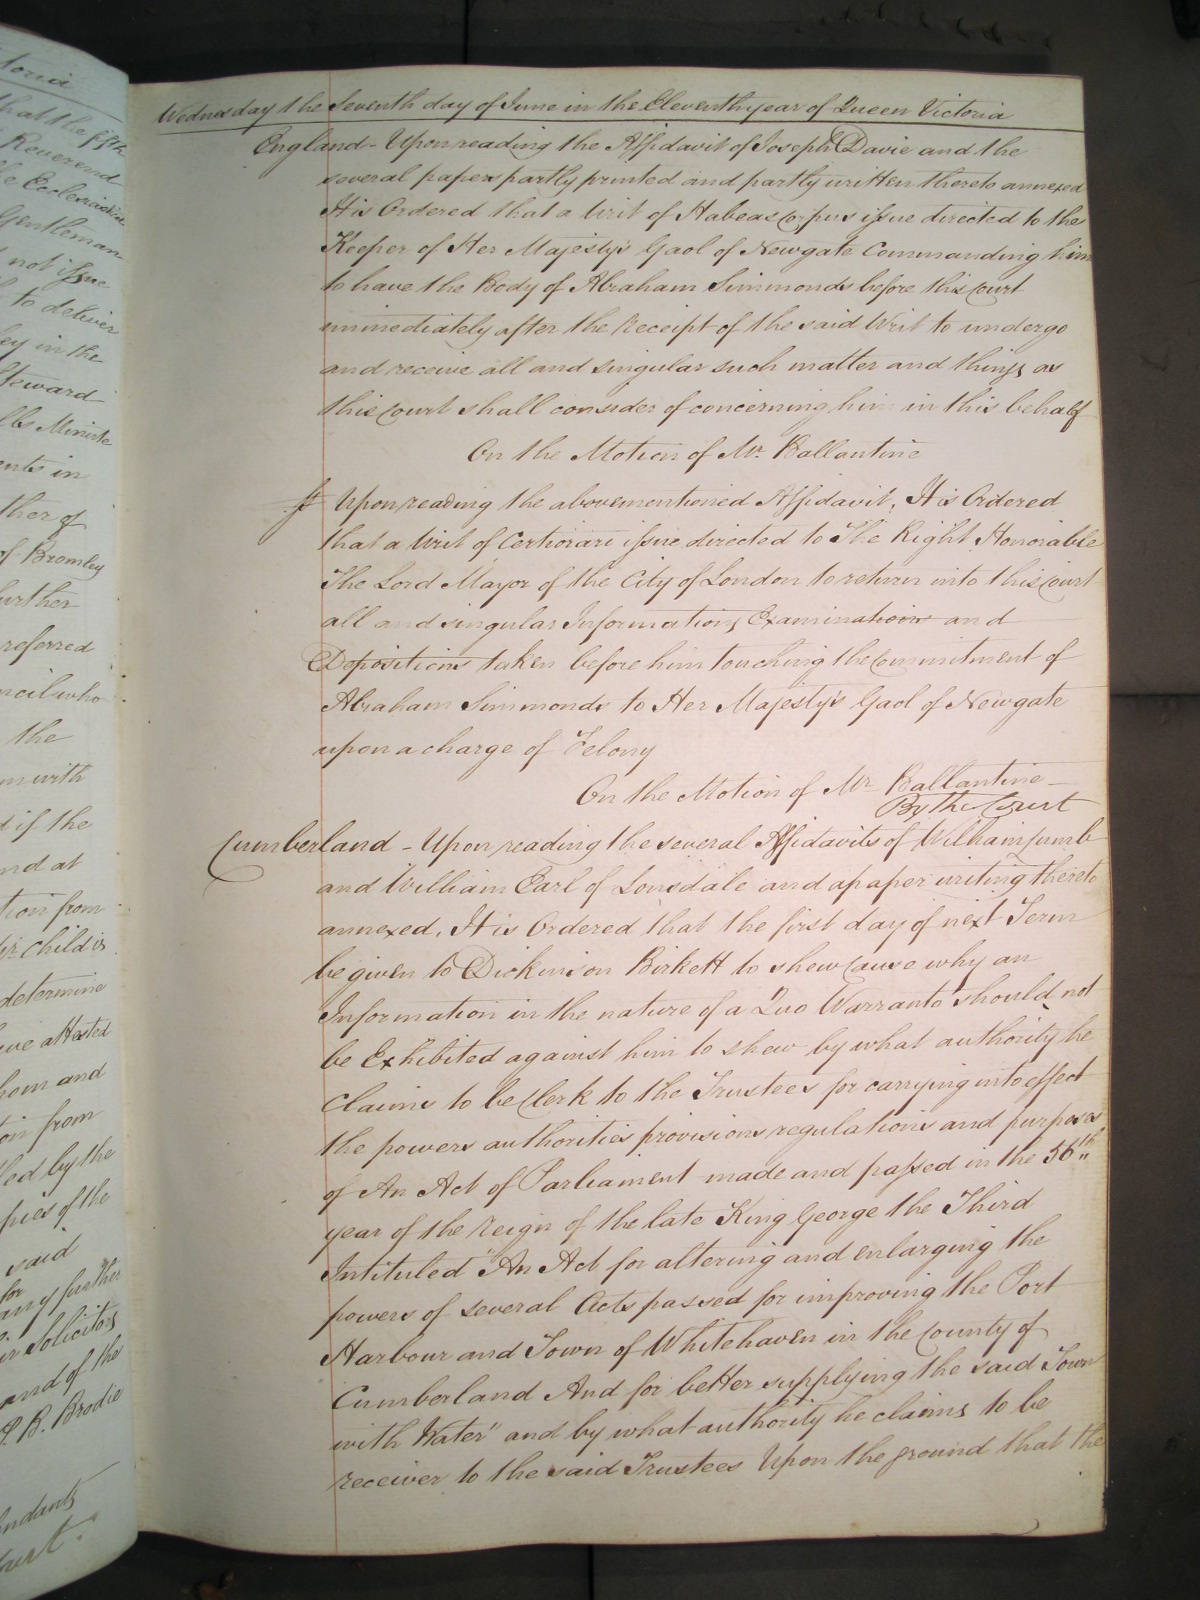 toria
that the fifth
Reverend
Ecclesiastical
Gentleman
not issue
to deliver
in the
Steward
Ministe
in
ther of
of Bromley
further
referred
who
the
with
if the
and at
tion from
child is
determine
attested
whom and
from
by the
copies of the
said
for
any further
Solicitors
and of the
P. B. Brodie
Court.
Wednesday the Seventh day of June in the Eleventh year of Queen Victoria
England - Upon reading the Affidavit of Joseph Davie and the
several papers partly printed and partly written thereto annexed
It is Ordered that a Writ of Habeas Corpus issue directed to the
Keeper of Her Majesty's Gaol of Newgate Commanding him
to have the Body of Abraham Simmonds before this Court
immediately after the receipt of the said Writ to undergo
and receive all and singular such matter and things as
this Court shall consider of concerning him in this behalf
On the Motion of Mr. Ballantine
Upon reading the abovementioned Affidavit, It is Ordered
that a Writ of Certiorari issue directed to The Right Honorable
The Lord Mayor of the City of London to return into this Court
all and singular Informations Examinations and
Depositions taken before him touching the Commitment of
Abraham Simmonds to Her Majesty's Gaol of Newgate
upon a charge of Felony
On the Motion of Mr Ballantine
By the Court
Cumberland - Upon reading the several Affidavits of William Jumb
and William Earl of Lonsdale and a paper writing thereto
annexed, It is Ordered that the first day of next Term
be given to Dickinson Birkett to shew Cause why an
Information in the nature of a Quo Warranto should not
be Exhibited against him to shew by what authority he
Claims to be Clerk to the Trustees for carrying into effect
the powers authorities provisions regulations and purposes
of An Act of Parliament made and passed in the 56th
year of the reign of the late King George the Third
Intituled "An Act for altering and enlarging the
powers of several Acts passed for improving the Port
Harbour and Town of Whitehaven in the County of
Cumberland And for better supplying the said Town
with Water" and by what authority he claims to be
receiver to the said Trustees Upon the ground that the